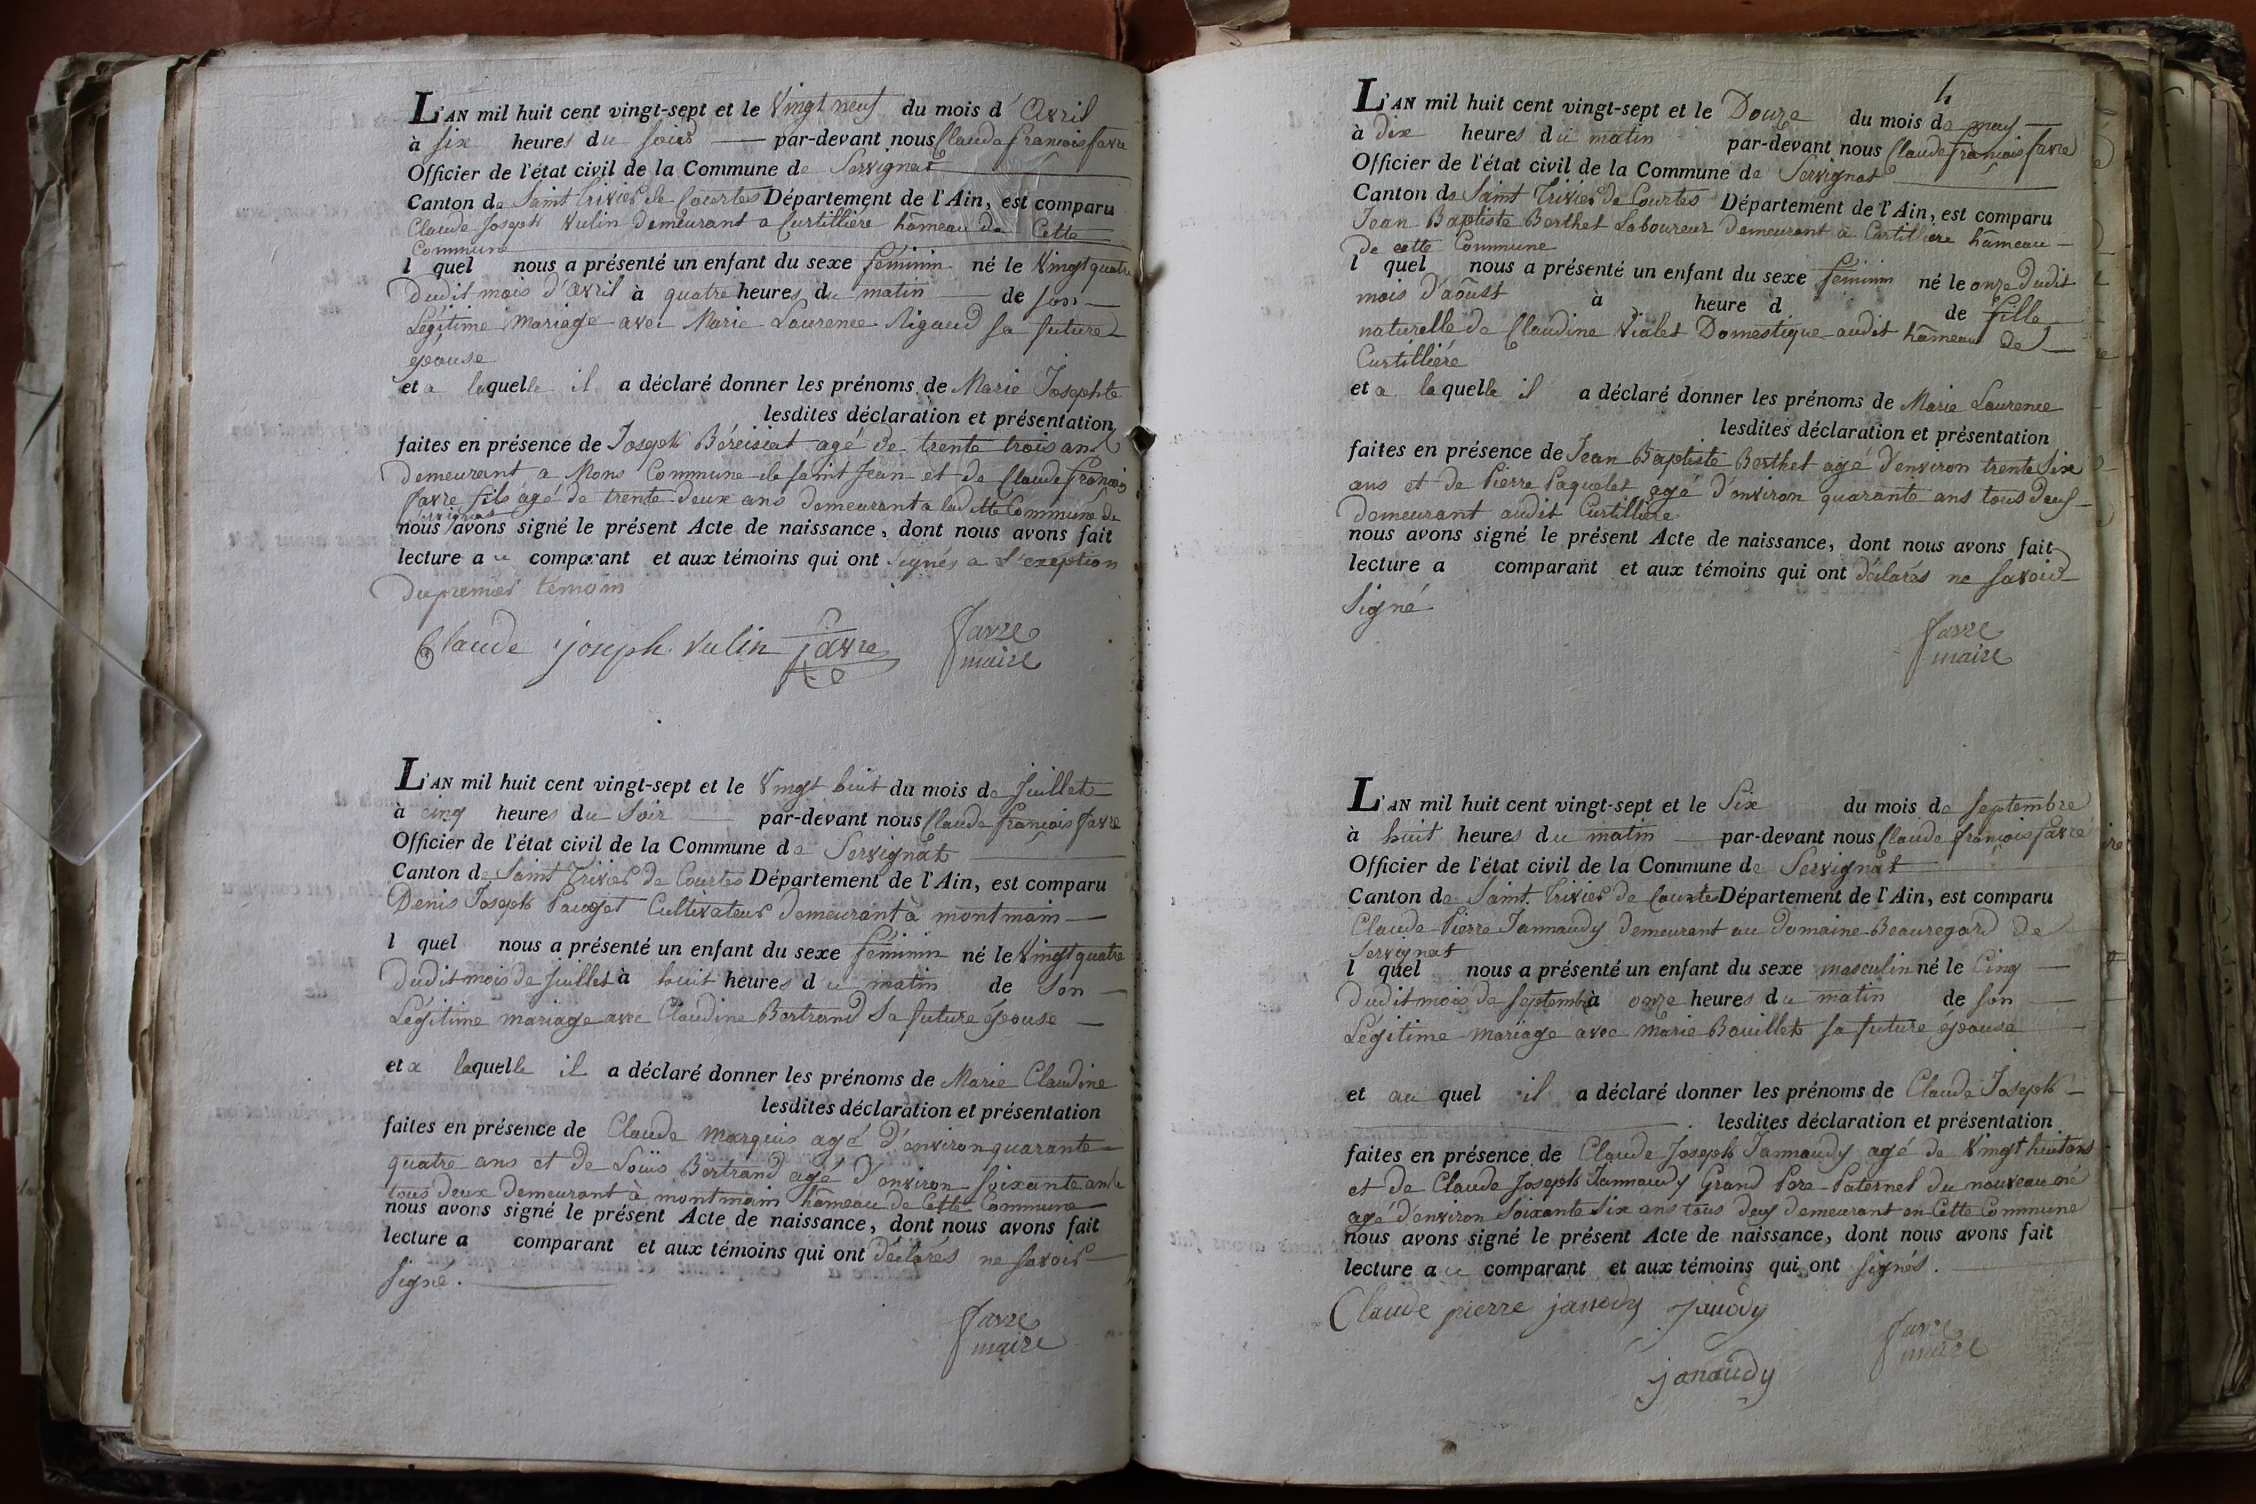 L'AN mil huit cent vingt-sept et le Vingt neuf du mois d'Avril
à six heures du soir par-devant nous Claude françois favre
Officier de l'état civil de la Commune de Servignat
Canton de Saint Trivier de Courtes Département de l'Ain, est comparu
Claude Joseph Vulin demeurant a Curtillière hâmeau de Cette
Commune
l quel nous a présenté un enfant du sexe féminin né le Vingt quatre
dudit mois d'avril à quatre heures du matin de son
Légitime mariage avec Marie Laurence Rigaud sa future
épouse
et a laquelle il a déclaré donner les prénoms de Marie Josephte
lesdites déclaration et présentation
faites en présence de Joseph Béreisiat agé de trente trois ans
demeurant a Mons Commune de saint Jean et de Claude françois
favre fils agé de trente deux ans demeurant a laditte Commune de
Servignat
nous avons signé le présent Acte de naissance, dont nous avons fait
lecture a u comparant et aux témoins qui ont signés a l'exeption
du premier témoin
Claude joseph vulin favre favre
maire
L'AN mil huit cent vingt-sept et le Vingt huit du mois de Juillet
à cinq heures du soir par-devant nous Claude françois favre
Officier de l'état civil de la Commune de Servignat
Canton de Saint Trivier de Courtes Département de l'Ain, est comparu
Denis Joseph Pauget Cultivateur demeurant à montmain
l quel nous a présenté un enfant du sexe féminin né le Vingt quatre
dudit mois de Juillet à huit heures du matin de son
Légitime mariage avec Claudine Bertrand sa future épouse
et a laquelle il a déclaré donner les prénoms de Marie Claudine
lesdites déclaration et présentation
faites en présence de Claude marquis agé d'environ quarante
quatre ans et de Loüis Bertrand agé d'environ soixante ans
tous deux demeurant à montmain hâmeau de Cette Commune
nous avons signé le présent Acte de naissance, dont nous avons fait
lecture a comparant et aux témoins qui ont déclarés ne savoir
signé.
favre
maire
4
L'AN mil huit cent vingt-sept et le Douze du mois de
à dix heures du matin par-devant nous Claude françois favre
Officier de l'état civil de la Commune de Servignat
Canton de Saint Trivier de Courtes Département de l'Ain, est comparu
Jean Baptiste Berthet Laboureur demeurant à Curtillière hâmeau
de cette Commune
l quel nous a présenté un enfant du sexe féminin né le onze dudit
mois d'aôust à heure d de fille
naturelle de Claudine Vialet Domestique audit hâmeau de
Curtilliére
et a laquelle il a déclaré donner les prénoms de Marie Laurence
lesdites déclaration et présentation
faites en présence de Jean Baptiste Berthet agé d'environ trente six
ans et de Pierre Paquelet agé d'environ quarante ans tous deux
demeurant audit Curtillière
nous avons signé le présent Acte de naissance, dont nous avons fait
lecture a comparant et aux témoins qui ont déclarés ne savoir
signé
favre
maire
L'AN mil huit cent vingt-sept et le Six du mois de septembre
à huit heures du matin par-devant nous Claude françois favre
Officier de l'état civil de la Commune de Servignat
Canton de Saint Trivier de Courtes Département de l'Ain, est comparu
Claude Pierre Jannaudy demeurant au domaine Beauregard de
Servignat
l quel nous a présenté un enfant du sexe masculin né le Cinq
dudit mois de septembre à onze heures du matin de son
Légitime mariage avec Marie Bouillet sa future épouse
et au quel il a déclaré donner les prénoms de Claude Joseph
lesdites déclaration et présentation
faites en présence de Claude Joseph Jannaudy agé de Vingt huit ans
et de Claude Joseph Jannaudy Grand Pere Paternel du nouveau né
agé d'environ soixante six ans tous deux demeurant en Cette Commune
nous avons signé le présent Acte de naissance, dont nous avons fait
lecture a u comparant et aux témoins qui ont signés.
Claude pierre janody Janôdy
favre
maire
janaudy